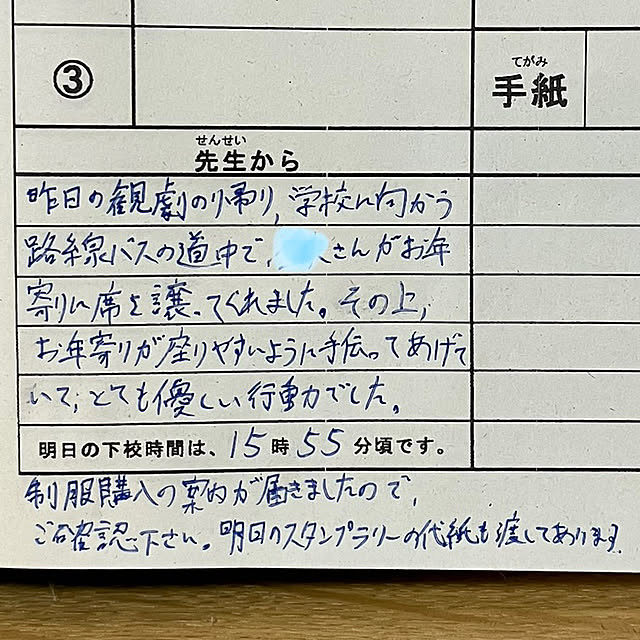 ③
てがみ
手紙
せんせい
先生から
昨日の観劇の帰り、学校に向かう
路線バスの道中で、さんがお年
寄りに席を譲ってくれました。その上、
お年寄りが座りやすいように手伝ってあげて
いて、とても優しい行動でした。
明日の下校時間は、15時55分頃です。
制服購入の案内が届きましたので、
ご確認下さい。明日のスタンプラリーの代紙も渡してあります。